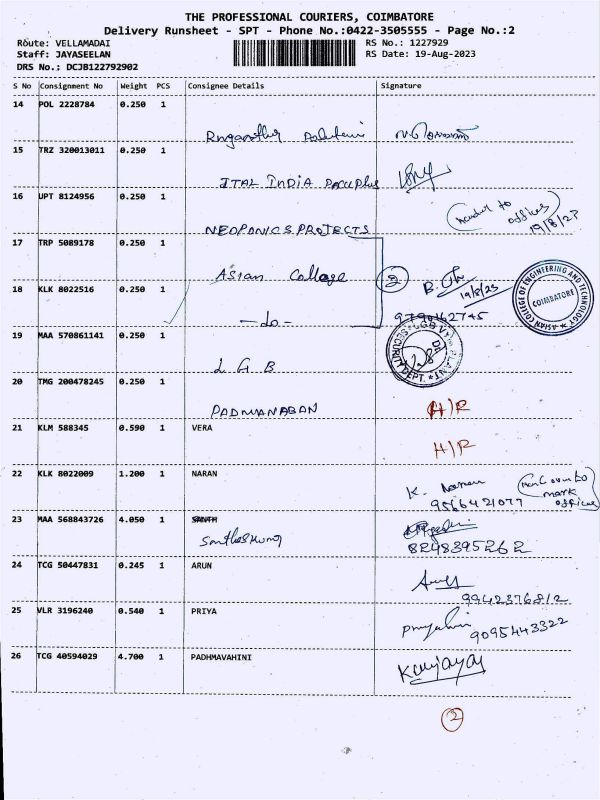 THE PROFESSIONAL COURIERS, COIMBATORE
Delivery Runsheet - SPT - Phone No.:0422-3505555 - Page No.:2
Route: VELLAMADAI RS No.: 1227929
Staff: JAYASEELAN RS Date: 19-Aug-2023
DRS No.: DCJB122792902
S No Consignment No Weight PCS Consignee Details Signature
14 POL 2228784 0.250 1
15 TRZ 320013011 0.250 1
ITAL INDIA
16 UPT 8124956 0.250 1
NEOPONICS PROJECTS
19/8/23
17 TRP 5089178 0.250 1
Asian College
2
18 KLK 8022516 0.250 1
-do-
19/8/23
9790162745
ASIAN COLLEGE OF ENGINEERING AND TECHNOLOGY
COIMBATORE
19 MAA 570861141 0.250 1
L G B
SECURITY DEPT.
20 TMG 200478245 0.250 1
PADMANABAN
H/R
21 KLM 588345 0.590 1 VERA
H/R
22 KLK 8022009 1.200 1 NARAN
K.
9566421077
mark
office
23 MAA 568843726 4.050 1 SANTH
8248395262
24 TCG 50447831 0.245 1 ARUN
9942376812
25 VLR 3196240 0.540 1 PRIYA
9095443322
26 TCG 40594029 4.700 1 PADHMAVAHINI
2